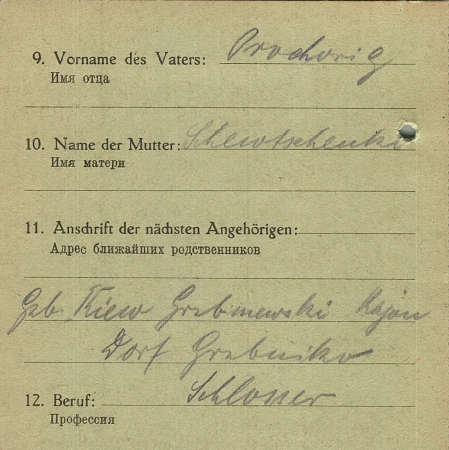 9. Vorname des Vaters: Prochorig
Имя отца
10. Name der Mutter: Schewtschenko
Имя матери
11. Anschrift der nächsten Angehörigen:
Адрес ближайших родственников
Geb. Kiew Grebinewski Rajon
Dorf Grebniko
12. Beruf: Schlosser
Профессия